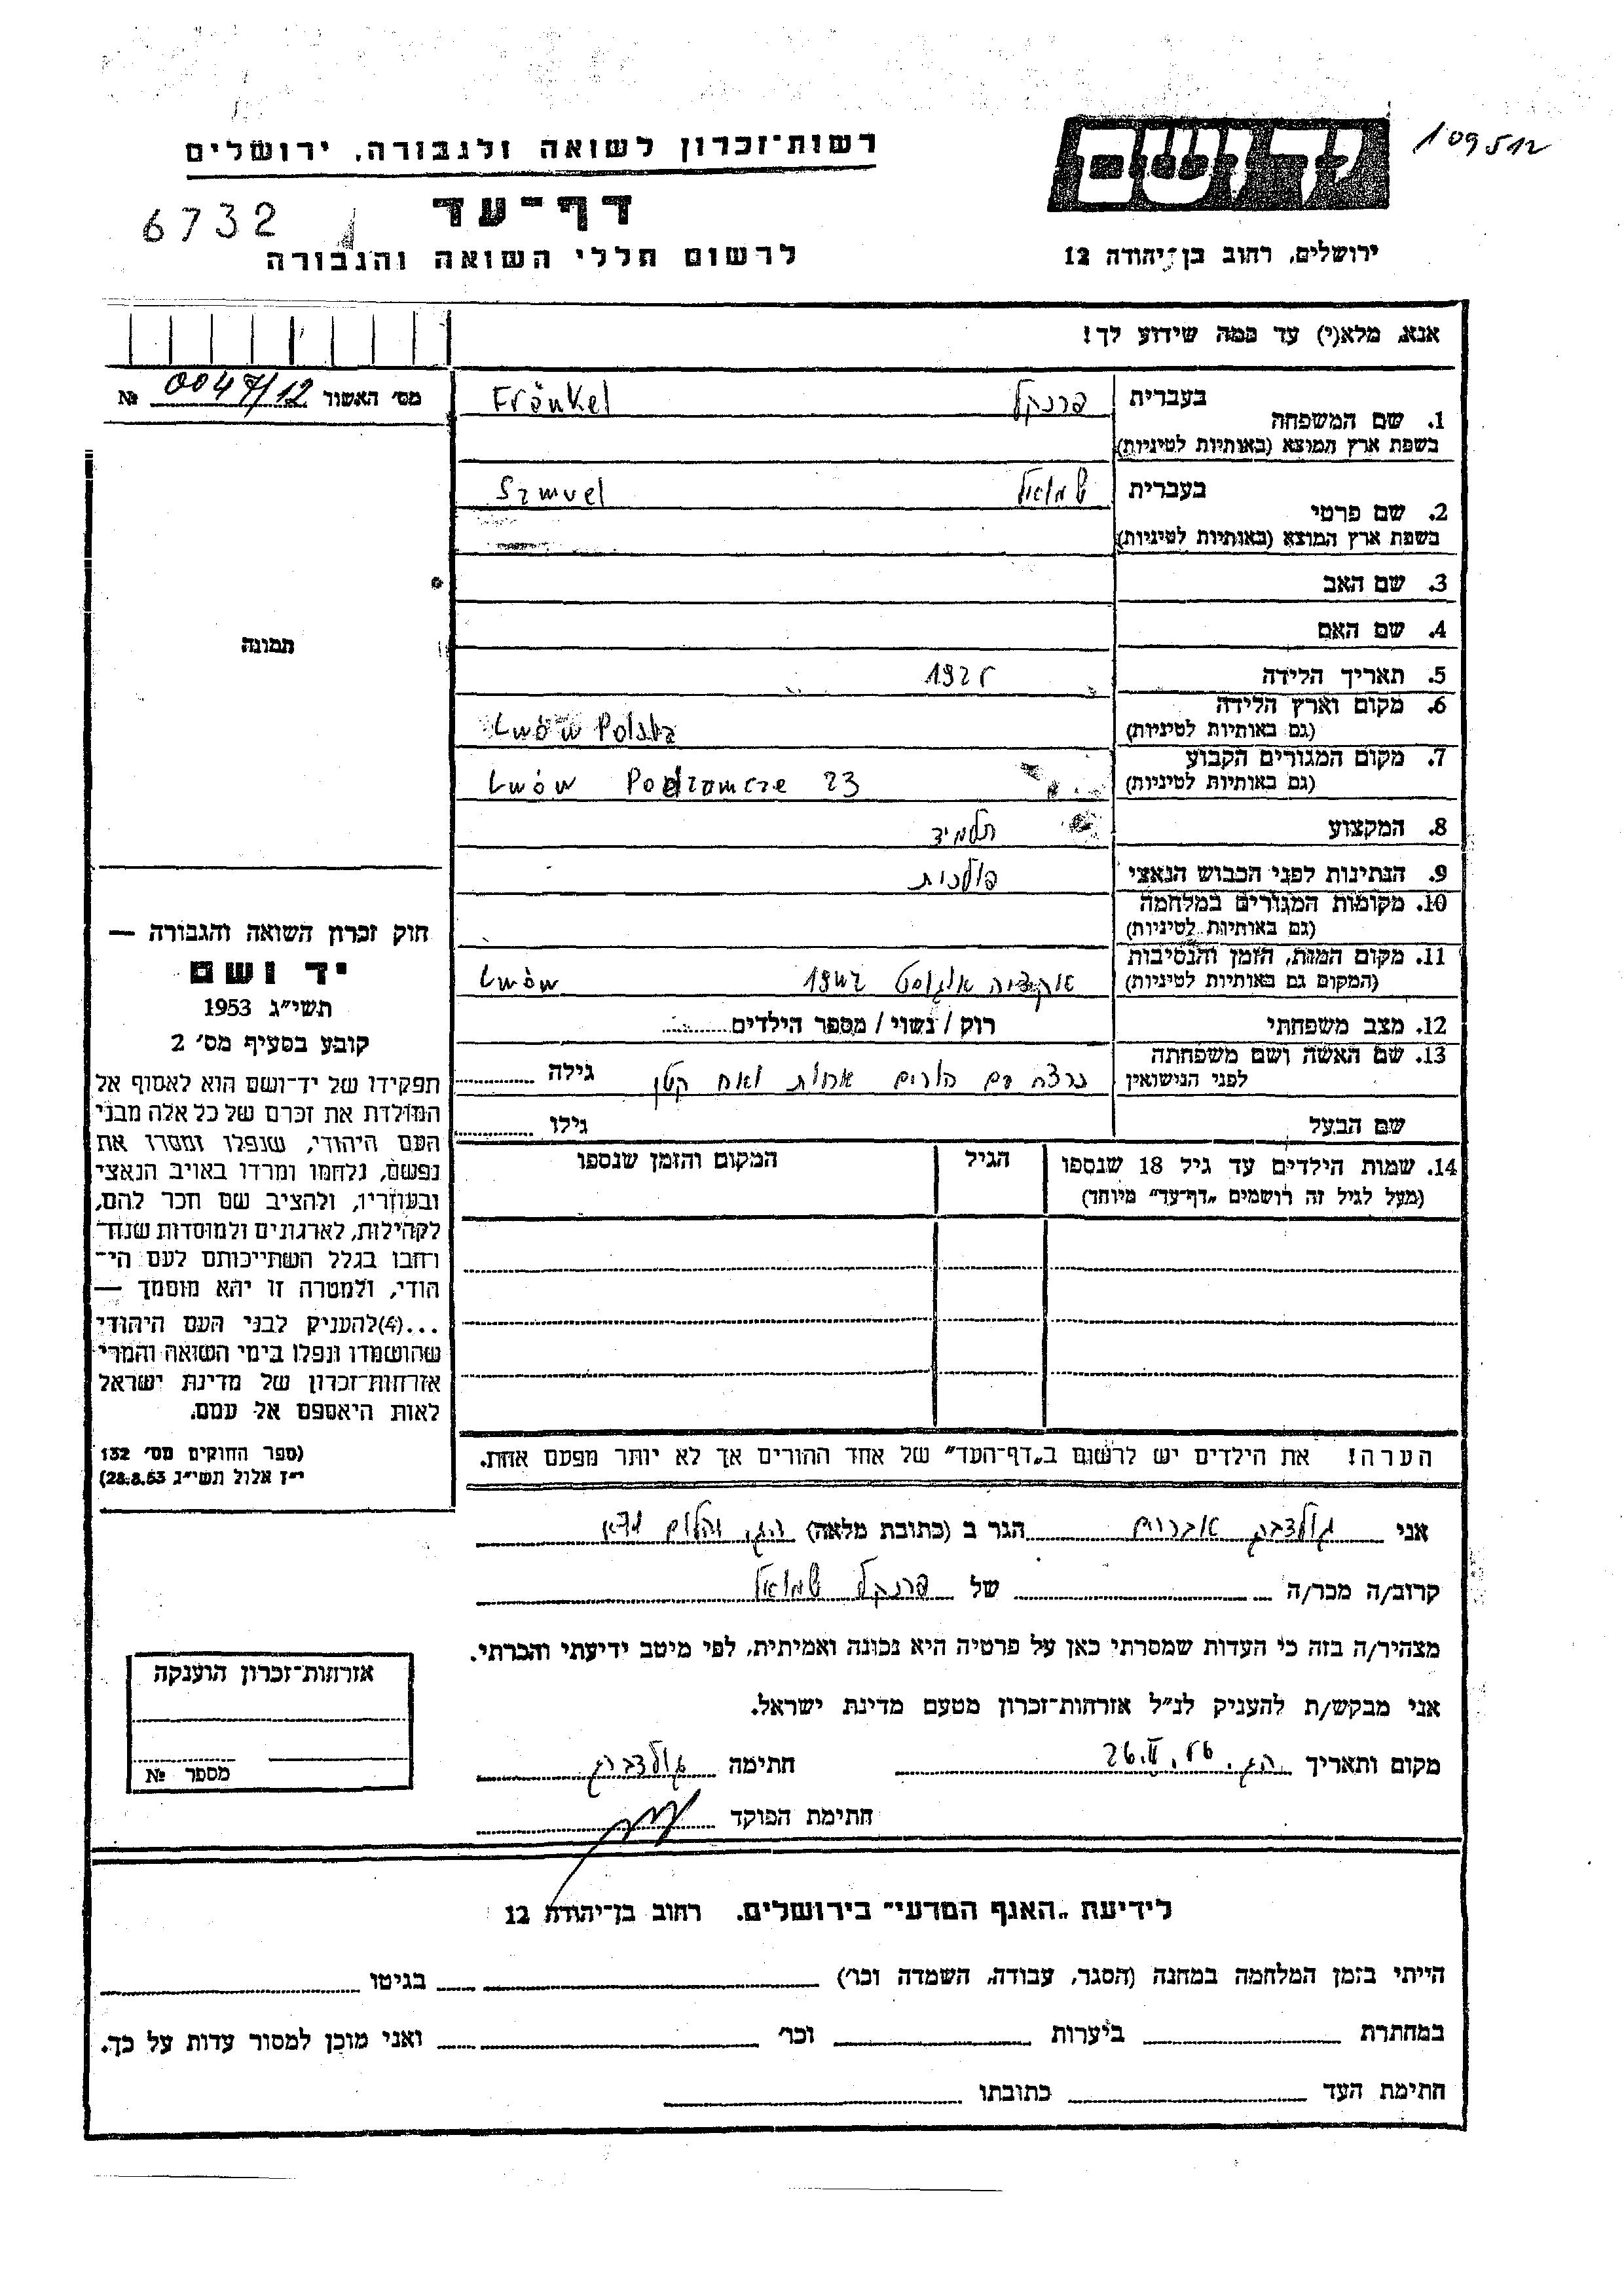 109512
יד ושם
רשות־זכרון לשואה ולגבורה, ירושלים
דף־עד
6732
לרשום חללי השואה והגבורה
ירושלים, רחוב בן־יהודה 12
אנא, מלא(י) עד כמה שידוע לך!
מס׳ האשור № 0047/12
בעברית פרנקל Fränkel
1. שם המשפחה
בשפת ארץ המוצא (באותיות לטיניות)
בעברית שמואל Szmuel
2. שם פרטי
בשפת ארץ המוצא (באותיות לטיניות)
3. שם האב
4. שם האם
תמונה
5. תאריך הלידה 192
6. מקום וארץ הלידה Lwów Polska
(גם באותיות לטיניות)
7. מקום המגורים הקבוע Lwów Podzamcze 23
(גם באותיות לטיניות)
8. המקצוע תלמיד
9. הנתינות לפני הכבוש הנאצי פולנית
10. מקומות המגורים במלחמה
(גם באותיות לטיניות)
11. מקום המות, הזמן והנסיבות
(המקום גם באותיות לטיניות) אקציה אוגוסט 1942 Lwów
12. מצב משפחתי רוק / נשוי / מספר הילדים
13. שם האשה ושם משפחתה
לפני הנישואין נרצח עם הורים אחות ואח קטן גילה
שם הבעל גילו
14. שמות הילדים עד גיל 18 שנספו הגיל המקום והזמן שנספו
(מעל לגיל זה רושמים „דף־עד" מיוחד)
חוק זכרון השואה והגבורה —
יד ושם
תשי״ג 1953
קובע בסעיף מס׳ 2
תפקידו של יד־ושם הוא לאסוף אל
המולדת את זכרם של כל אלה מבני
העם היהודי, שנפלו ומסרו את
נפשם, נלחמו ומרדו באויב הנאצי
ובעוזריו, ולהציב שם וזכר להם,
לקהילות, לארגונים ולמוסדות שנח־
רחבו בגלל השתייכותם לעם הי־
הודי, ולמטרה זו יהא מוסמך —
...(4)להעניק לבני העם היהודי
שהושמדו ונפלו בימי השואה והמרי
אזרחות־זכרון של מדינת ישראל
לאות היאספם אל עמם.
(ספר החוקים מס׳ 132
י״ז אלול תשי״ג 28.8.53)
הערה! את הילדים יש לרשום ב„דף־העד" של אחד ההורים אך לא יותר מפעם אחת.
אני גולדברג אברהם הגר ב (כתובת מלאה)
קרוב/ה מכר/ה של פרנקל שמואל
מצהיר/ה בזה כי העדות שמסרתי כאן על פרטיה היא נכונה ואמיתית, לפי מיטב ידיעתי והכרתי.
אני מבקש/ת להעניק לנ״ל אזרחות־זכרון מטעם מדינת ישראל.
מקום ותאריך 26.II.56 חתימה גולדברג
חתימת הפוקד
אזרחות־זכרון הוענקה
מספר №
לידיעת „האגף המדעי" בירושלים, רחוב בן־יהודה 12
הייתי בזמן המלחמה במחנה (הסגר, עבודה, השמדה וכו׳) בגיטו
במחתרת ביערות וכו׳ ואני מוכן למסור עדות על כך.
חתימת העד כתובתו